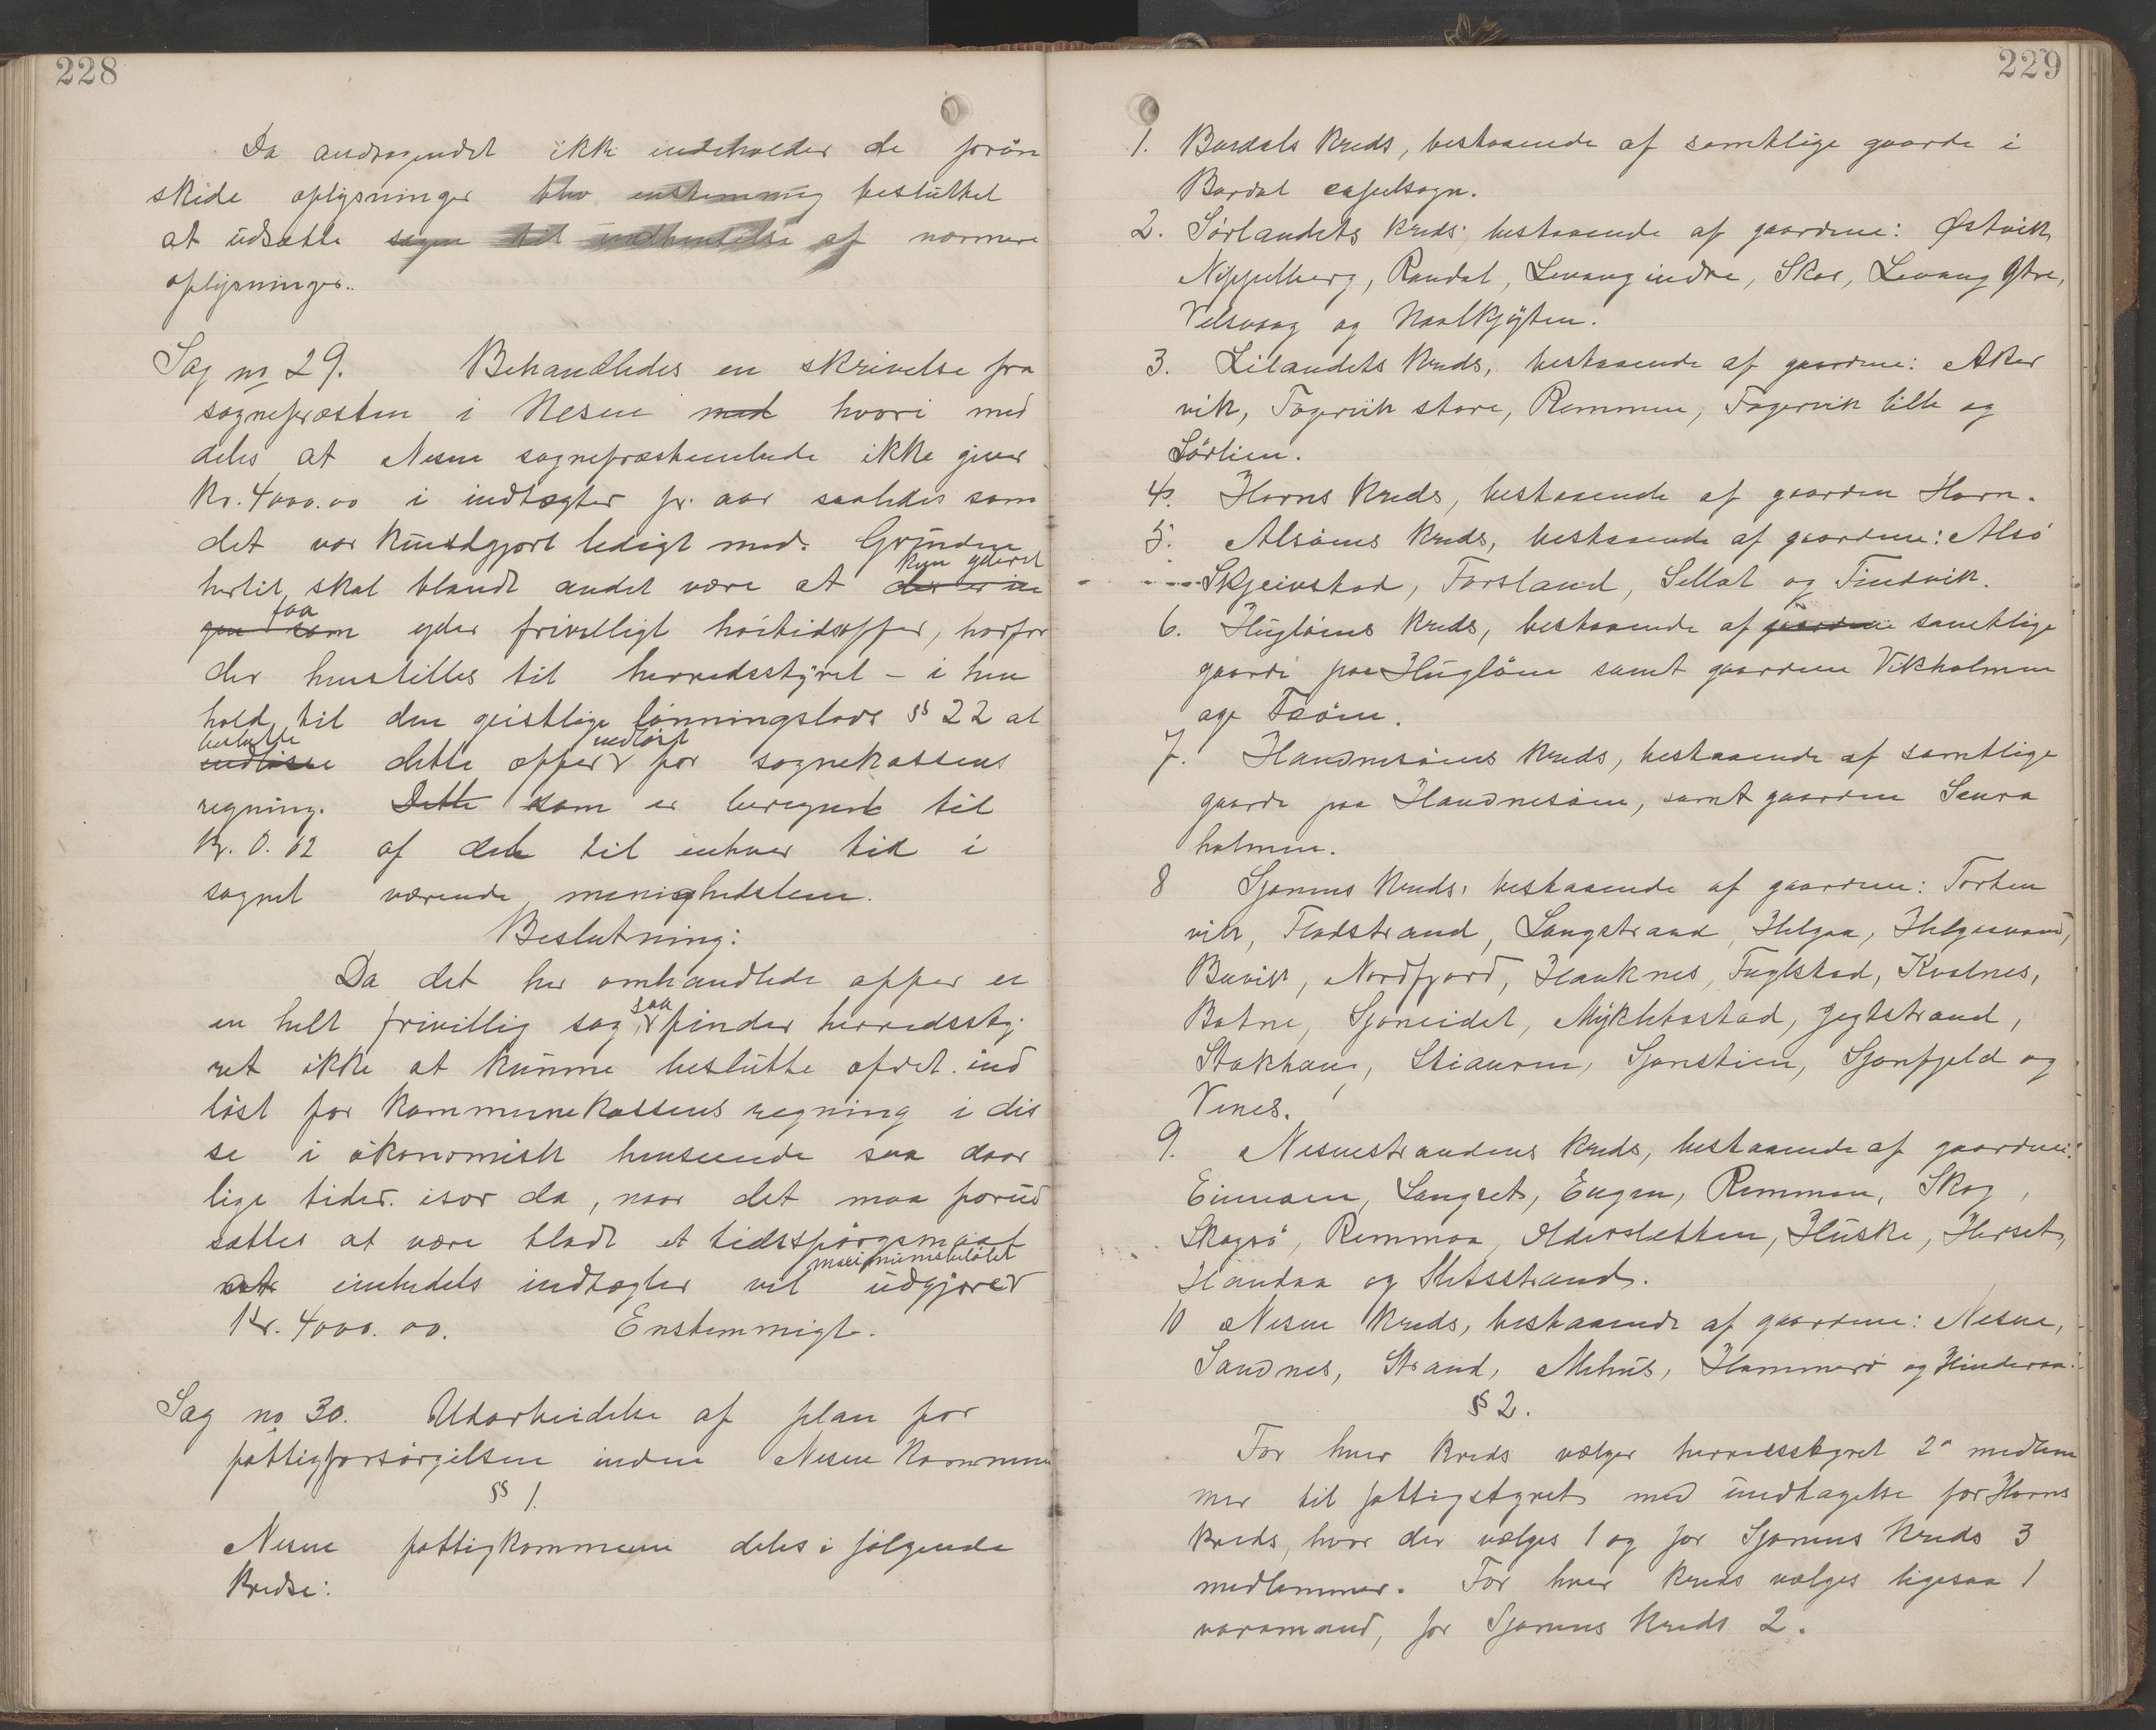 228
Da andragendet ikke indeholder de forøn
skede oplysninger blev enstemmig besluttet
at udsætte sagen til indhentelse af nærmere
oplysninger.
Sag no 29. Behandledes en skrivelse fra
sognepræsten i Nesne med hvori med
deles at Nesne sognepræstembede ikke giver
Kr. 4000.00 i indtægter pr. aar saaledes som
det var kundgjort ledigt med. Grunden
kun ganske
hertil skal blandt andet være at der er in
faa
gen som yder frivilligt høitidsoffer, hvorfor
der henstilles til herredsstyret - i hen
hold til den geistlige lønningslovs § 22 at
beslutte indløst
indløse dette offer for sognekassens
regning. Dette som er beregnet til
Kr. 0.12 af det til enhver tid i
sognet værende menighedslem.
Beslutning:
Da det her omhandlede offer er
saa
en helt frivillig sag, finder herredssty
ret ikke at kunne beslutte ofret ind
løst for kommunekassens regning i dis
se i økonomisk henseende saa daar
lige tider især da, naar det maa forud
sættes at være blodt et tidsspørgsmaal
maximumsbeløbet
at embedets indtægter vil udgjøre
Kr. 4000.00. Enstemmigt.
Sag no 30. Udarbeidelse af plan for
fattigforsørgelsen inden Nesne kommune
§ 1.
Nesne fattigkommune deles i følgende
kredse:
229
1. Bardals kreds, bestaaende af samtlige gaarde i
Bardal capelsogn.
2. Sørlandets kreds, bestaaende af gaardene: Østvik,
Nippelberg, Randal, Levang indre, Skar, Levang Ytre,
Velsvaag og Naalkjøyten.
3. Lilandets kreds, bestaaende af gaardene: Aker
vik, Fagervik store, Remmen, Fagervik lille og
Sørlien.
4. Horns kreds, bestaaende af gaarden Horn.
5. Alsøens kreds, bestaaende af gaardene: Alsø
Skjeivstad, Forsland, Sellot og Tindvik.
6. Hugløens kreds, bestaaende af gaardene samtlige
gaarde paa Hugløen samt gaardene Vikholmen
og Fæøen.
7. Handnesøens kreds, bestaaende af samtlige
gaarde paa Handnesøen, samt gaarden Saura
holmen.
8 Sjonens kreds, bestaaende af gaardene: Torten
vik, Fladstrand, Langstrand, Helgaa, Helgesvand,
Buvik, Nordfjord, Hauknes, Fuglstad, Kvalnes,
Botne, Sjoneidet, Myklebostad, Jegtstrand,
Stokhaug, Stiauren, Sjonstien, Sjonfjeld og
Vines.
9. Nesnestrandens kreds, bestaaende af gaardene:
Einmoen, Langset, Engen, Remmen, Skog,
Skogsø, Remmaa, Oldersletten, Huske, Herset,
Handaa og Sletsstrand.
10 Nesne kreds, bestaaende af gaardene: Nesne,
Sandnes, Strand, Mehus, Hammerø og Hinderaa.
§ 2.
For hver kreds vælger herredsstyret 2 medlem
mer til fattigstyret med undtagelse for Horns
kreds, hvor der vælges 1 og for Sjonens kreds 3
medlemmer. For hver kreds vælges ligesaa 1
varamand, for Sjonens kreds 2.